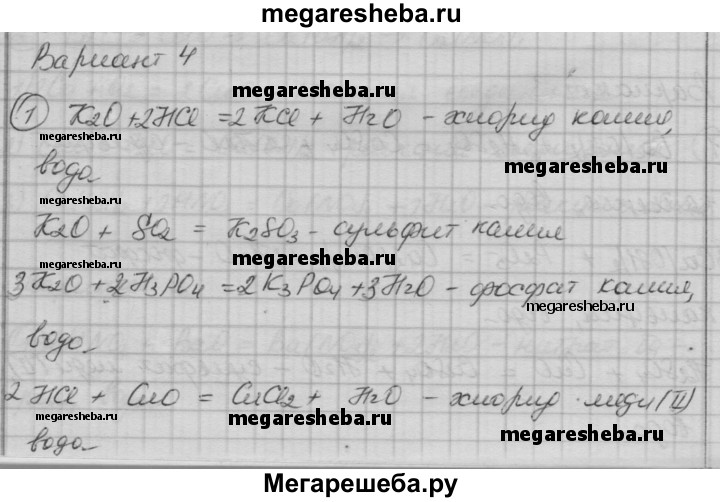 megaresheba.ru
Вариант 4
megaresheba.ru
① K2O + 2HCl = 2 KCl + H2O - хлорид калия,
megaresheba.ru
megaresheba.ru
вода
K2O + SO2 = K2SO3 - сульфит калия
megaresheba.ru
megaresheba.ru
3K2O + 2H3PO4 = 2K3PO4 + 3H2O - фосфат калия,
megaresheba.ru
вода
megaresheba.ru
2HCl + CuO = CuCl2 + H2O - хлорид меди (II)
megaresheba.ru
megaresheba.ru
вода
Мегарешеба.ру